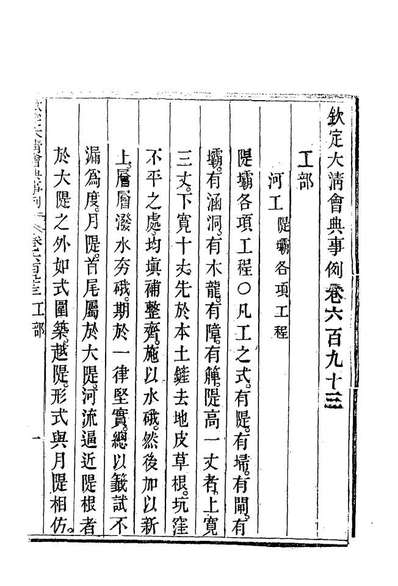 欽定大清會典事例卷六百九十三
工部
河工隄壩各項工程
隄壩各項工程○凡工之式。有隄。有埽。有閘。有
壩。有涵洞。有木龍。有障。有
隄高一丈者。上寬
三丈。下寬十丈。先於本土
去地皮草根。坑窪
不平之處。均塡補整齊。施以水硪。然後加以新
上。層層潑水夯硪。期於一律堅實。總以籤試不
漏爲度。月隄。首尾屬於大隄。河流逼近隄根者
於大隄之外如式圍築。越隄。形式與月隄相仿。
欽定大清會典事例
工部
一